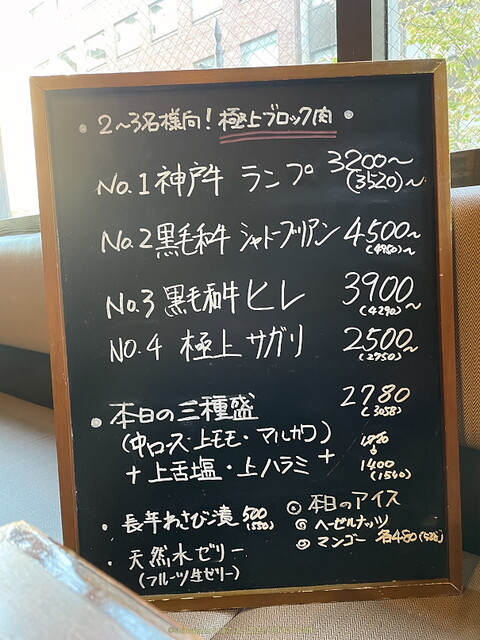 2～3名様向！極上ブロック肉
No.1 神戸牛 ランプ 3200～
(3520)～
No.2 黒毛和牛 シャトーブリアン 4500～
(4950)～
No.3 黒毛和牛ヒレ 3900～
(4290)
No.4 極上 サガリ 2500～
(2750)
・本日の三種盛 2780
(3058)
(中ロース・上モモ・マルカワ)
+上舌塩・上ハラミ+
1400
(1540)
・長年わさび漬 500
(550)
・天然水ゼリー
(フルーツ生ゼリー)
◎本日のアイス
◎ヘーゼルナッツ
◎マンゴー 各480(528)